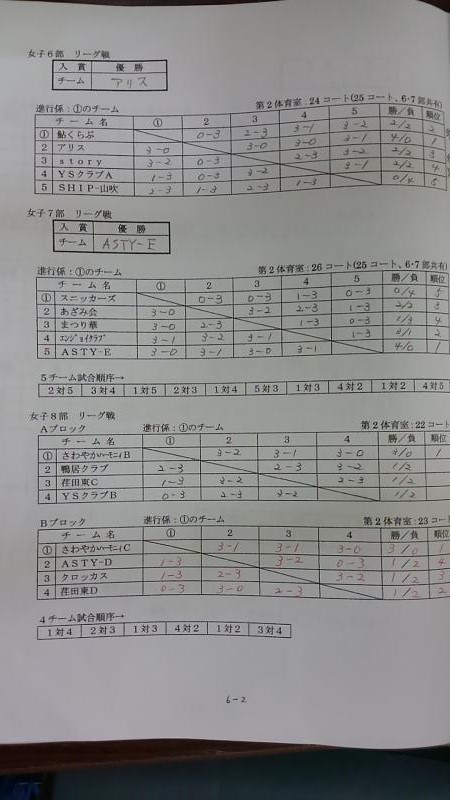 女子6部 リーグ戦
入賞 優勝
チーム アリス
進行係:①のチーム 第2体育室:24コート(25コート、6・7部共有)
チーム名 ① 2 3 4 5 勝/負 順位
① 鮎くらぶ 0-3 2-3 3-1 3-2 2/2 2
2 アリス 3-0 3-0 3-0 3-1 4/0 1
3 story 3-2 0-3 2-3 3-2 2/2 3
4 YSクラブA 1-3 0-3 3-2 3-1 2/2 4
5 SHIP-山吹 2-3 1-3 2-3 1-3 0/4 5
女子7部 リーグ戦
入賞 優勝
チーム ASTY-E
進行係:①のチーム 第2体育室:26コート(25コート、6・7部共有)
チーム名 ① 2 3 4 5 勝/負 順位
① スニッカーズ 0-3 0-3 1-3 0-3 0/4 5
2 あざみ会 3-0 3-2 2-3 1-3 2/2 3
3 まつり華 3-0 2-3 1-3 0-3 1/3 4
4 エンジョイクラブ 3-1 3-2 3-1 1-3 3/1 2
5 ASTY-E 3-0 3-1 3-0 3-1 4/0 1
5チーム試合順序→
2対5 3対4 1対5 2対3 1対4 5対3 1対3 4対2 1対2 4対5
女子8部 リーグ戦
Aブロック 進行係:①のチーム 第2体育室:22コート
チーム名 ① 2 3 4 勝/負 順位
① さわやかハーモニィB 3-2 3-1 3-0 3/0 1
2 鴨居クラブ 2-3 2-3 3-2 1/2
3 荏田東C 1-3 3-2 2-3 1/2
4 YSクラブB 0-3 2-3 3-2 1/2
Bブロック 進行係:①のチーム 第2体育室:23コート
チーム名 ① 2 3 4 勝/負 順位
① さわやかハーモニィC 3-1 3-1 3-0 3/0 1
2 ASTY-D 1-3 3-2 0-3 1/2 4
3 クロッカス 1-3 2-3 3-2 1/2 3
4 荏田東D 0-3 3-0 2-3 1/2 2
4チーム試合順序→
1対4 2対3 1対3 4対2 1対2 3対4
6-2